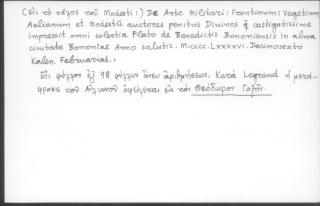 (Εἰς τὸ τέλος τοῦ Modesti:) De Arte Militari: Frontinum: Vegetium
Aelianum et Modestū auctores penitus Diuinos q̄ castigatissime
impressit omni solertia Plato de Benedictis Bononiensis in alma
ciuitate Bononiae Anno salutis. M.CCCC.LXXXXVI. Decimosexto
Kalen. Februarias.
Εἰς φύλλον ἐξ 98 φύλλων ἄνευ ἀριθμήσεως. Κατὰ Legrand ἡ μετά-
φρασις τοῦ Αἰλιανοῦ ὀφείλεται εἰς τὸν Θεόδωρον Γαζῆν.